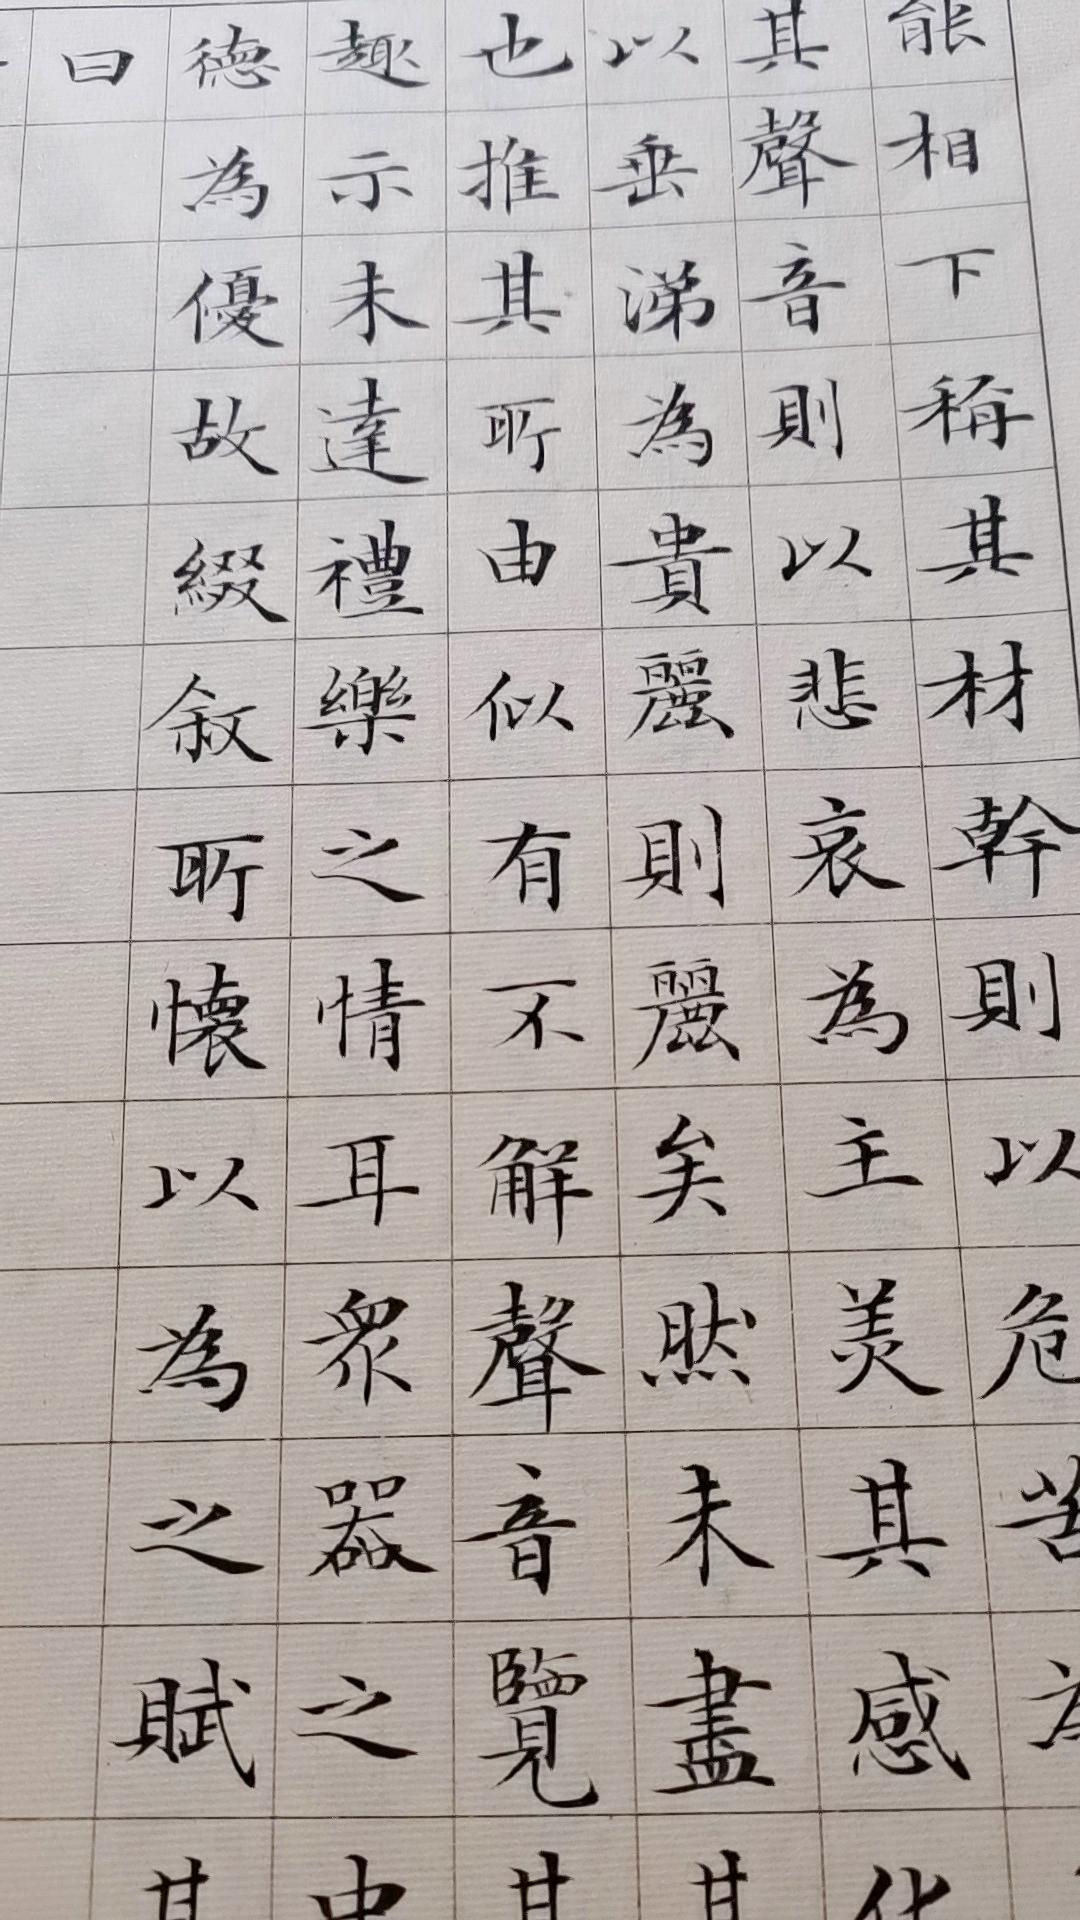 能相下稱其材幹則以危苦為
其聲音則以悲哀為主美其感化
以垂涕為貴麗則麗矣然未盡其
也推其所由似有不解聲音覽其
趣示未達禮樂之情耳眾器之中
德為優故綴叙所懷以為之賦其
曰